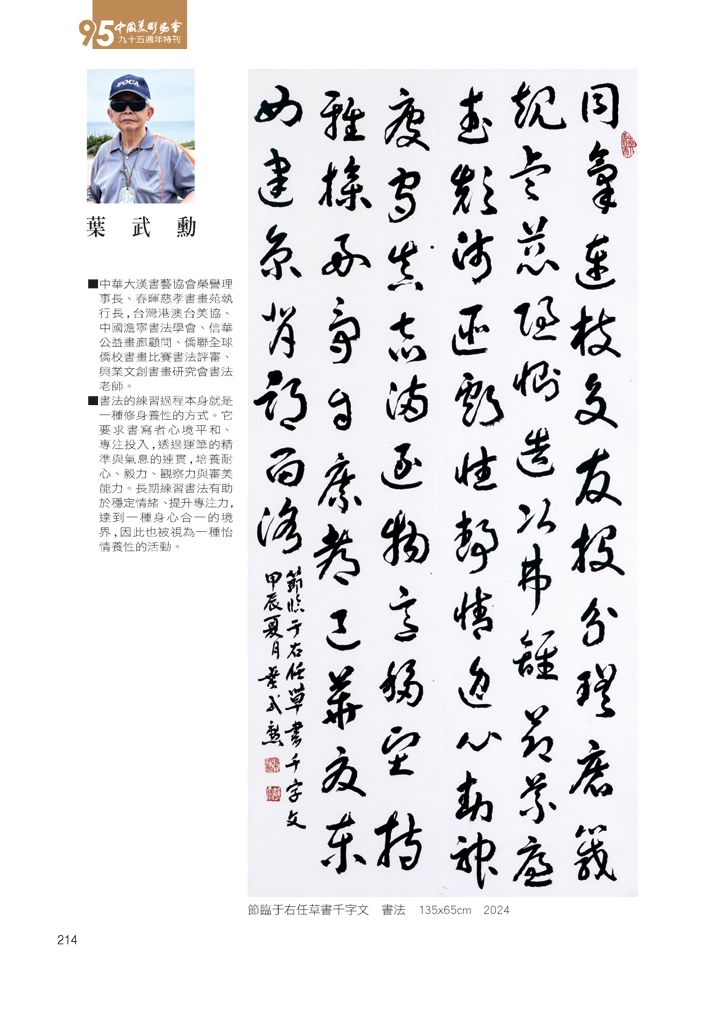 95 中國美術協會
九十五週年特刊
葉武勳
■中華大漢書藝協會榮譽理
事長、春暉慈孝書畫苑執
行長，台灣港澳台美協、
中國澹寧書法學會、信華
公益畫廊顧問、僑聯全球
僑校書畫比賽書法評審、
興業文創書畫研究會書法
老師。
■書法的練習過程本身就是
一種修身養性的方式。它
要求書寫者心境平和、
專注投入，透過運筆的精
準與氣息的連貫，培養耐
心、毅力、觀察力與審美
能力。長期練習書法有助
於穩定情緒、提升專注力，
達到一種身心合一的境
界，因此也被視為一種怡
情養性的活動。
同氣連枝交友投分磨箴
規仁慈隱惻造次弗離節義廉
退顛沛匪虧性靜情逸心動神
疲守真志滿逐物意移堅持
雅操好爵自縻都邑華夏東
京背邙面洛
節臨于右任草書千字文
甲辰夏月葉武勳
節臨于右任草書千字文 書法 135x65cm 2024
214